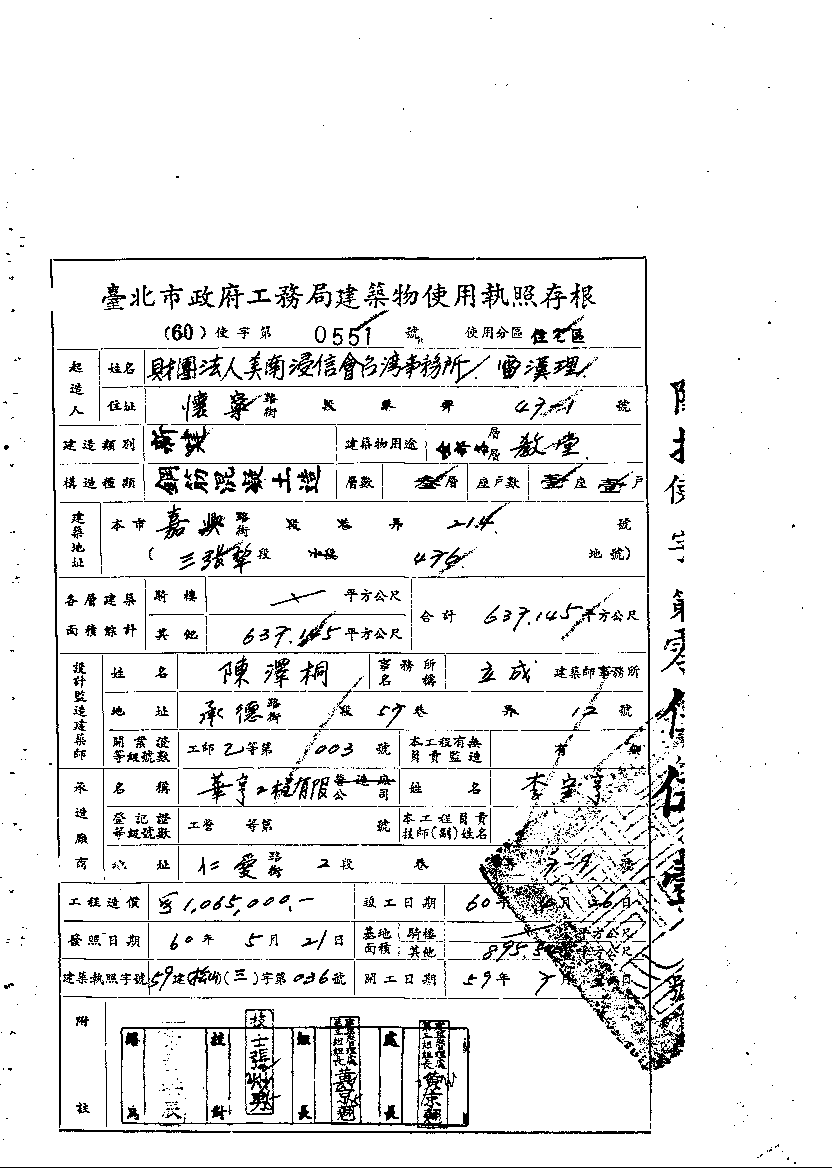 臺北市政府工務局建築物使用執照存根
(60)使字第 0551 號 使用分區 住宅區
起造人 姓名 財團法人美南浸信會台灣事務所 雷漢理
住址 懷寧 路街 段 巷 弄 47-1 號
建造類別 新建 建築物用途 層層 教堂
構造種類 鋼筋混凝土造 層數 叁層 座戶數 壹座 壹戶
建築地址 本市 嘉興 路街 段 巷 弄 214 號
(三張犂段 小段 476 地號)
各層建築面積總計 騎樓 平方公尺 合計 637.145 平方公尺
其他 637.145 平方公尺
設計監造建築師 姓名 陳澤桐 事務所名稱 立成 建築師事務所
地址 承德 路街 段 57 巷 弄 12 號
開業證等級號數 工師乙等第 003 號 本工程有無負責監造 有
承造廠商 名稱 華亨工程有限 營造公司 姓名 李
登記證等級號數 工營 等第 號 本工程負責技師(副)姓名
地址 仁愛 路街 2段 巷 號
工程造價 1,065,000.- 竣工日期 60年 月 日
發照日期 60年 5月 21日 基地面積 騎樓 平方公尺
其他 895. 平方公尺
建築執照字號 59建(三)字第036號 開工日期 59年 月 日
附註
校對 技士張 組長 處長
使字第零伍伍壹號